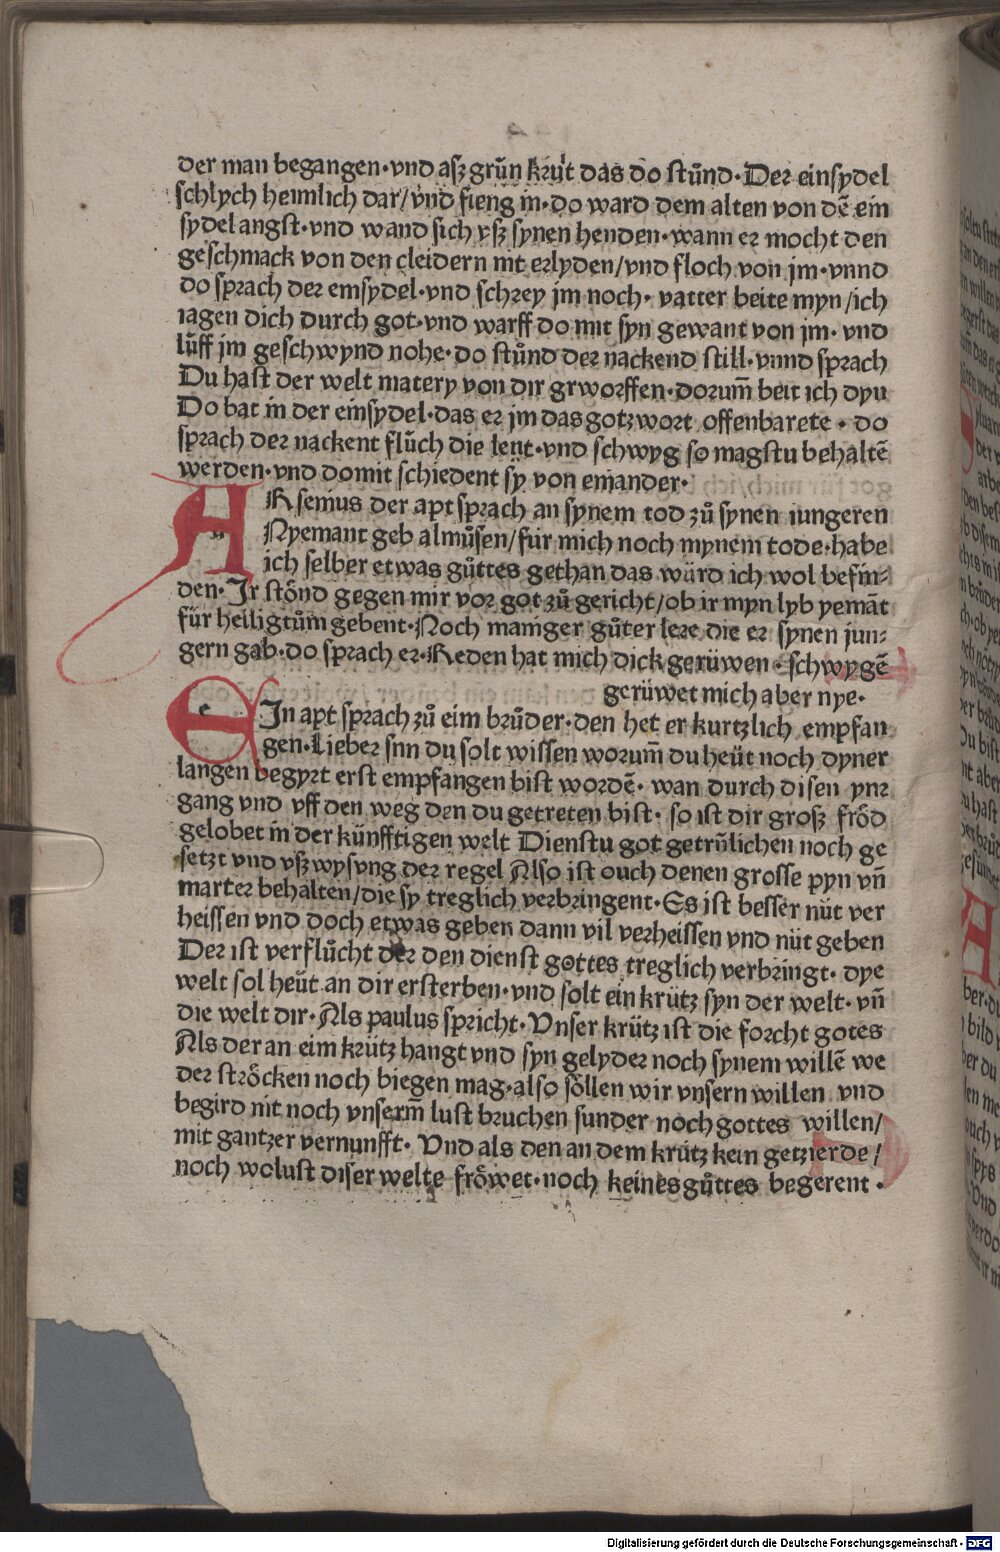 der man begangen·vnd aſz grün krüt das do ſtůnd·Der einſydel
ſchlych heimlich dar/vnd fieng in·do ward dem alten von dē ein
ſydel angſt·vnd wand ſich vſz ſynen henden·wann er mocht den
geſchmack von den cleidern nit erlyden/vnd floch von jm·vnnd
do ſprach der einſydel·vnd ſchrey jm noch·vatter beite myn/ich
iagen dich durch got·vnd warff do mit ſyn gewant von jm·vnd
lůff jm geſchwynd nohe·do ſtůnd der nackend ſtill·vnnd ſprach
Du haſt der welt matery von dir geworffen·dorum̄ beit ich dyn
Do bat in der einſydel·das er jm das gotzwort offenbarete·do
ſprach der nackent flüch die leüt·vnd ſchwyg ſo magſtu behaltē
werden·vnd domit ſchiedent ſy von einander·
ARſenius der apt ſprach an ſynem tod zů ſynen iungeren
Nyemant geb almůſen/für mich noch mynem tode·habe
ich ſelber etwas gůttes gethan das würd ich wol befin-
den·Ir ſtönd gegen mir vor got zů gericht/ob ir myn lyb yemāt
für heiligtům gebent·Noch maniger gůter lere die er ſynen jun-
gern gab·do ſprach er·Reden hat mich dick gerüwen·ſchwygē
gerüwet mich aber nye·
EIn apt ſprach zů eim brůder·den het er kurtzlich empfan
gen·Lieber ſun du ſolt wiſſen worum̄ du heüt noch dyner
langen begyrt erſt empfangen biſt wordē·wan durch diſen ynr
gang vnd vff den weg den du getreten biſt·ſo iſt dir groſz fröd
gelobet in der künfftigen welt Dienſtu got getrülichen noch ge
ſetzt vnd vſzwyſung der regel Alſo iſt ouch denen groſſe pyn vn̄
marter behalten/die ſy treglich verbringent·Es iſt beſſer nüt ver
heiſſen vnd doch etwas geben dann vil verheiſſen vnd nüt geben
Der iſt verflůcht der den dienſt gottes treglich verbringt·dye
welt ſol heüt an dir erſterben·vnd ſolt ein krütz ſyn der welt·vn̄
die welt dir·Als paulus ſpricht·Vnſer krütz iſt die forcht gotes
Als der an eim krütz hangt vnd ſyn gelyder noch ſynem willē we
der ſtröcken noch biegen mag·alſo ſöllen wir vnſern willen vnd
begird nit noch vnſerm̄ luſt bruchen ſunder noch gottes willen/
mit gantzer vernunfft·Vnd als den an dem krütz kein getzierde/
noch woluſt diſer welte fröwet·noch keines gůttes begerent·
Digitalisierung gefördert durch die Deutsche Forschungsgemeinschaft - DFG